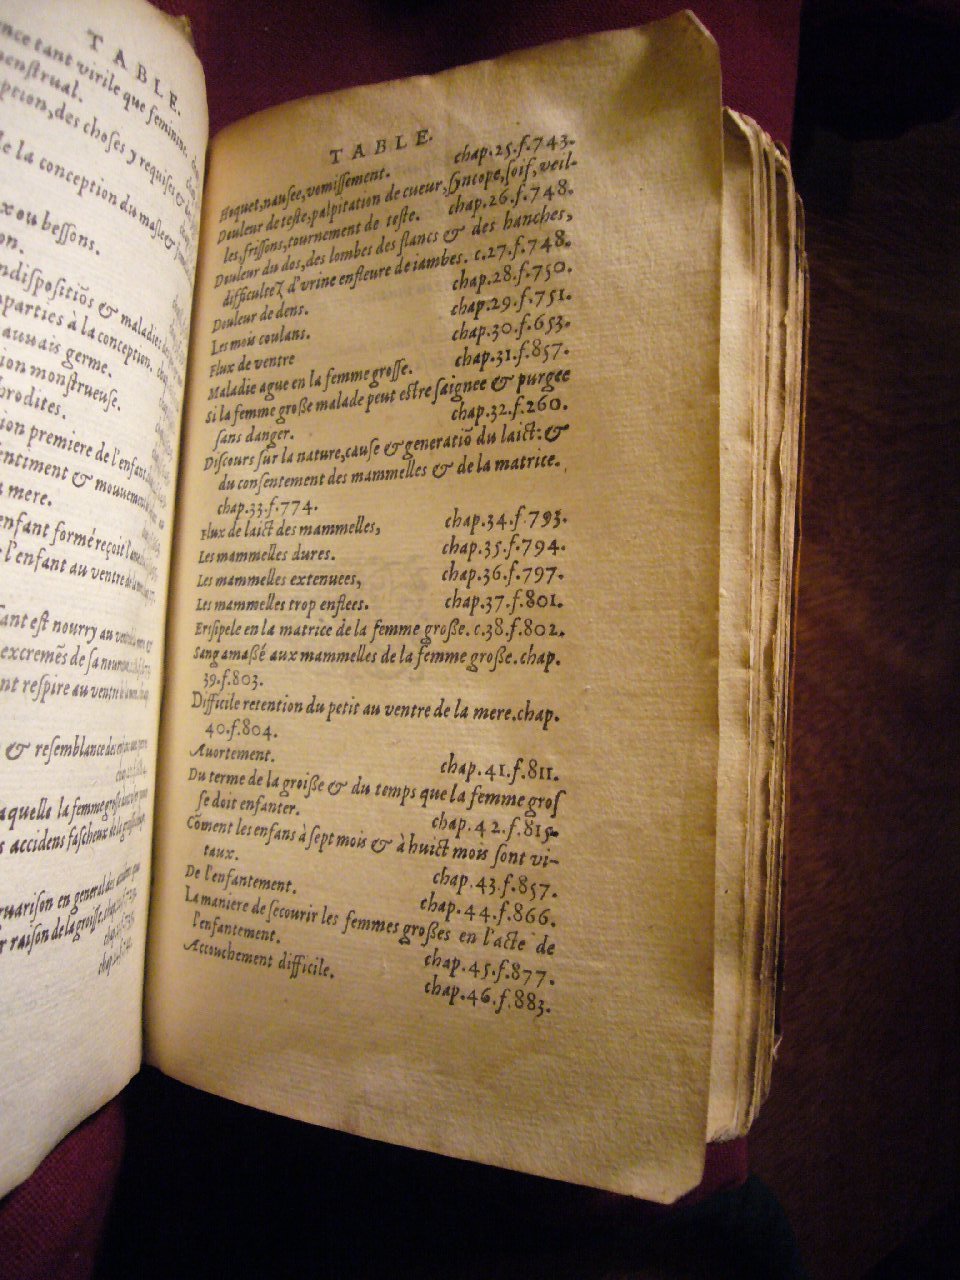 TABLE.
nce tant virile que feminine,
menstrual.
ption, des choses y requises &
de la conception du masle &
x ou bessons.
on.
ndispositiõs & maladies
parties à la conception.
auuais germe.
ion monstrueuse.
rodites.
ion premiere de l'enfant
entiment & mouuement
mere.
enfant formé reçoit l'ame
l'enfant au ventre de la
ant est nourry au
excremẽs de sa
nt respire au ventre
& resemblance des
aquelle la femme grosse
s accidens fascheux de la
uarison en general des
r raison de la groisse.
TABLE.
Hoquet, nausee, vomissement. chap.25.f.743.
Douleur de teste, palpitation de cueur, syncope, soif, veil-
les, frissons, tournement de teste. chap.26.f.748.
Douleur du dos, des lombes des flancs & des hanches,
difficulteʒ d'vrine enfleure de iambes. c.27.f.748.
Douleur de dens. chap.28.f.750.
Les mois coulans. chap.29.f.751.
Flux de ventre chap.30.f.653.
Maladie ague en la femme grosse. chap.31.f.857.
si la femme große malade peut estre saignee & purgee
sans danger. chap.32.f.260.
Discours sur la nature, cause & generatiõ du laict: &
du consentement des mammelles & de la matrice.
chap.33.f.774.
Flux de laict des mammelles, chap.34.f.793.
Les mammelles dures. chap.35.f.794.
Les mammelles extenuees, chap.36.f.797.
Les mammelles trop enflees. chap.37.f.801.
Erisipele en la matrice de la femme große. c.38.f.802.
Sang amaßé aux mammelles de la femme große. chap.
39.f.803.
Difficile retention du petit au ventre de la mere. chap.
40.f.804.
Auortement. chap.41.f.811.
Du terme de la groiße & du temps que la femme gros
se doit enfanter. chap.42.f.815.
Cõment les enfans à sept mois & à huict mois sont vi-
taux. chap.43.f.857.
De l'enfantement. chap.44.f.866.
La maniere de secourir les femmes großes en l'acte de
l'enfantement. chap.45.f.877.
Accouchement difficile. chap.46.f.883.